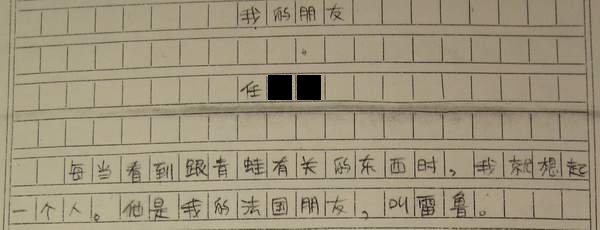 我的朋友
任
每当看到跟青蛙有关的东西时，我就想起
一个人。他是我的法国朋友，叫雷鲁。